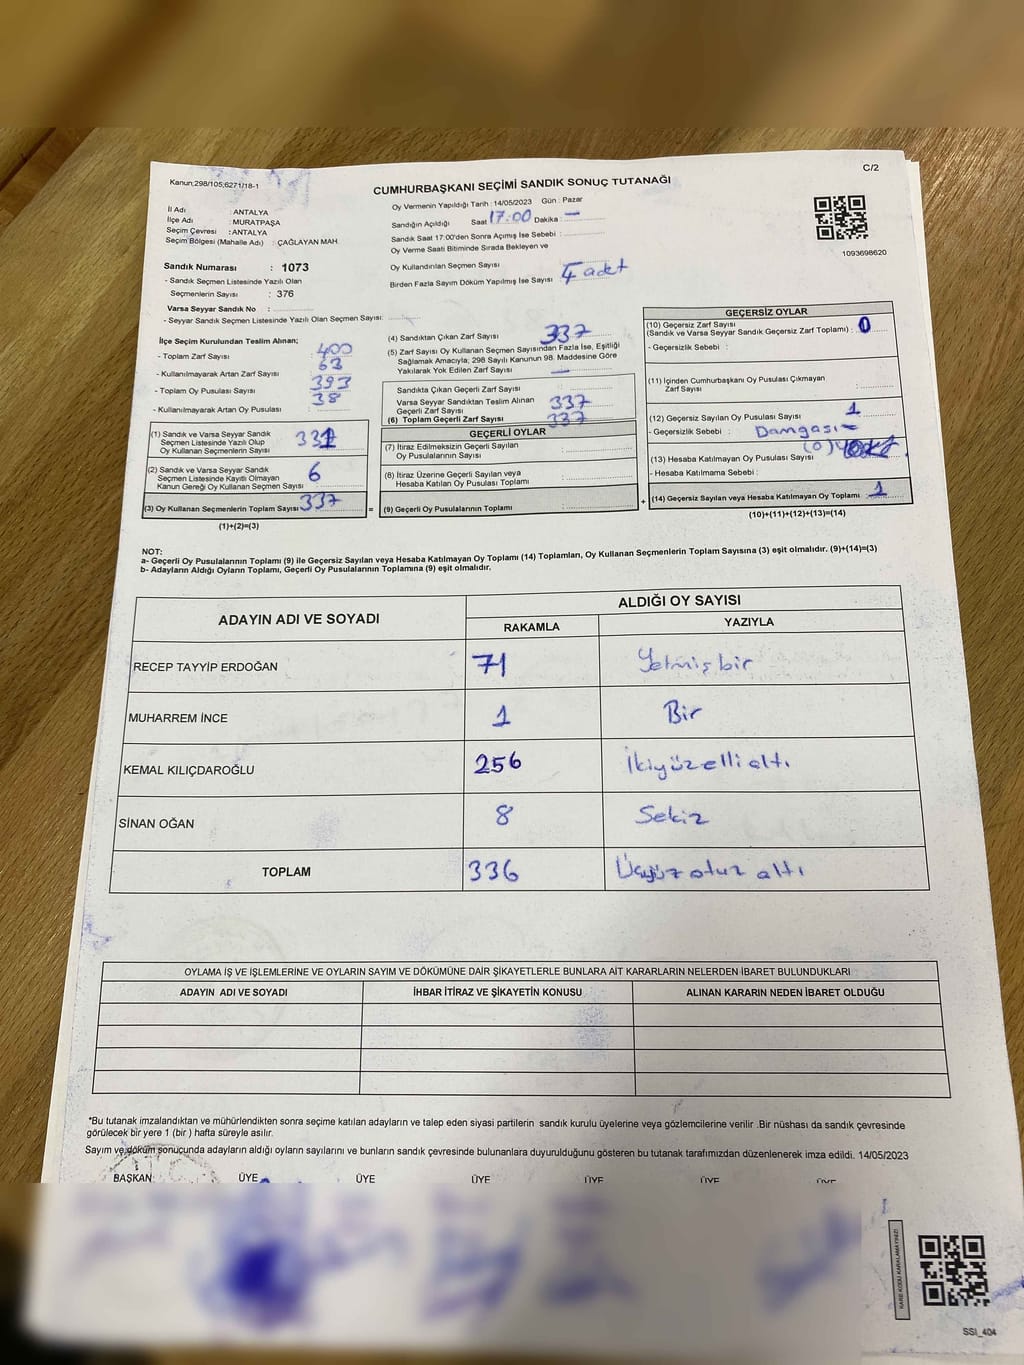 Kanun;298/105;6271/18-1
C/2
CUMHURBAŞKANI SEÇİMİ SANDIK SONUÇ TUTANAĞI
İl Adı : ANTALYA
İlçe Adı : MURATPAŞA
Seçim Çevresi : ANTALYA
Seçim Bölgesi (Mahalle Adı) : ÇAĞLAYAN MAH.
Sandık Numarası : 1073
- Sandık Seçmen Listesinde Yazılı Olan
Seçmenlerin Sayısı : 376
Varsa Seyyar Sandık No :
- Seyyar Sandık Seçmen Listesinde Yazılı Olan Seçmen Sayısı:
Oy Vermenin Yapıldığı Tarih : 14/05/2023 Gün : Pazar
Sandığın Açıldığı Saat 17:00 Dakika : —
Sandık Saat 17:00'den Sonra Açımış İse Sebebi :
Oy Verme Saati Bitiminde Sırada Bekleyen ve
Oy Kullandırılan Seçmen Sayısı
Birden Fazla Sayım Döküm Yapılmış İse Sayısı : 4 adet
1093698620
İlçe Seçim Kurulundan Teslim Alınan;
- Toplam Zarf Sayısı : 400
- Kullanılmayarak Artan Zarf Sayısı : 63
- Toplam Oy Pusulası Sayısı : 393
- Kullanılmayarak Artan Oy Pusulası : 38
(1) Sandık ve Varsa Seyyar Sandık
Seçmen Listesinde Yazılı Olup
Oy Kullanan Seçmenlerin Sayısı 331
(2) Sandık ve Varsa Seyyar Sandık
Seçmen Listesinde Kayıtlı Olmayan
Kanun Gereği Oy Kullanan Seçmen Sayısı 6
(3) Oy Kullanan Seçmenlerin Toplam Sayısı 337
(1)+(2)=(3)
(4) Sandıktan Çıkan Zarf Sayısı 337
(5) Zarf Sayısı Oy Kullanan Seçmen Sayısından Fazla İse, Eşitliği
Sağlamak Amacıyla, 298 Sayılı Kanunun 98. Maddesine Göre
Yakılarak Yok Edilen Zarf Sayısı : —
Sandıkta Çıkan Geçerli Zarf Sayısı :
Varsa Seyyar Sandıktan Teslim Alınan
Geçerli Zarf Sayısı 337
(6) Toplam Geçerli Zarf Sayısı 337
GEÇERLİ OYLAR
(7) İtiraz Edilmeksizin Geçerli Sayılan
Oy Pusulalarının Sayısı :
(8) İtiraz Üzerine Geçerli Sayılan veya
Hesaba Katılan Oy Pusulası Toplamı :
= (9) Geçerli Oy Pusulalarının Toplamı :
GEÇERSİZ OYLAR
(10) Geçersiz Zarf Sayısı
(Sandık ve Varsa Seyyar Sandık Geçersiz Zarf Toplamı) : 0
- Geçersizlik Sebebi :
(11) İçinden Cumhurbaşkanı Oy Pusulası Çıkmayan
Zarf Sayısı :
(12) Geçersiz Sayılan Oy Pusulası Sayısı : 1
- Geçersizlik Sebebi : Damgası
(13) Hesaba Katılmayan Oy Pusulası Sayısı (0)
- Hesaba Katılmama Sebebi :
+ (14) Geçersiz Sayılan veya Hesaba Katılmayan Oy Toplamı : 1
(10)+(11)+(12)+(13)=(14)
NOT:
a- Geçerli Oy Pusulalarının Toplamı (9) ile Geçersiz Sayılan veya Hesaba Katılmayan Oy Toplamı (14) Toplamları, Oy Kullanan Seçmenlerin Toplam Sayısına (3) eşit olmalıdır. (9)+(14)=(3)
b- Adayların Aldığı Oyların Toplamı, Geçerli Oy Pusulalarının Toplamına (9) eşit olmalıdır.
ADAYIN ADI VE SOYADI
ALDIĞI OY SAYISI
RAKAMLA YAZIYLA
RECEP TAYYİP ERDOĞAN 71 Yetmişbir
MUHARREM İNCE 1 Bir
KEMAL KILIÇDAROĞLU 256 İkiyüzellialtı
SİNAN OĞAN 8 Sekiz
TOPLAM 336 Üçyüzotuz altı
OYLAMA İŞ VE İŞLEMLERİNE VE OYLARIN SAYIM VE DÖKÜMÜNE DAİR ŞİKAYETLERLE BUNLARA AİT KARARLARIN NELERDEN İBARET BULUNDUKLARI
ADAYIN ADI VE SOYADI İHBAR İTİRAZ VE ŞİKAYETİN KONUSU ALINAN KARARIN NEDEN İBARET OLDUĞU
*Bu tutanak imzalandıktan ve mühürlendikten sonra seçime katılan adayların ve talep eden siyasi partilerin sandık kurulu üyelerine veya gözlemcilerine verilir .Bir nüshası da sandık çevresinde
görülecek bir yere 1 (bir ) hafta süreyle asılır.
Sayım ve döküm sonucunda adayların aldığı oyların sayılarını ve bunların sandık çevresinde bulunanlara duyurulduğunu gösteren bu tutanak tarafımızdan düzenlenerek imza edildi. 14/05/2023
BAŞKAN ÜYE ÜYE ÜYE ÜYE ÜYE ÜYE
KARE KODU KARALAMAYINIZ!
SSI_404